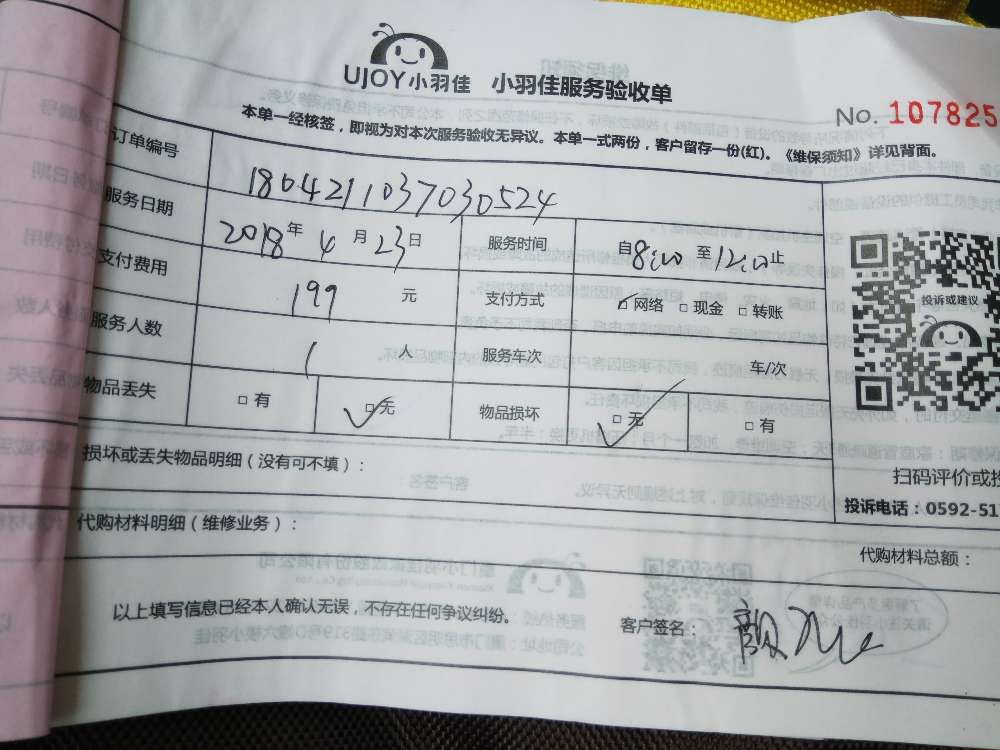 UJOY小羽佳 小羽佳服务验收单
No. 107825
本单一经核签，即视为对本次服务验收无异议。本单一式两份，客户留存一份(红)。《维保须知》详见背面。
订单编号 1804211037030524
服务日期 2018年4月23日 服务时间 自8:00至12:00止
支付费用 199元 支付方式 □网络 □现金 □转账
服务人数 1人 服务车次 车/次
物品丢失 □有 □无 物品损坏 □无 □有
投诉或建议
损坏或丢失物品明细（没有可不填）：
扫码评价或投
投诉电话：0592-51
代购材料明细（维修业务）：
代购材料总额：
以上填写信息已经本人确认无误，不存在任何争议纠纷。
客户签名：颜